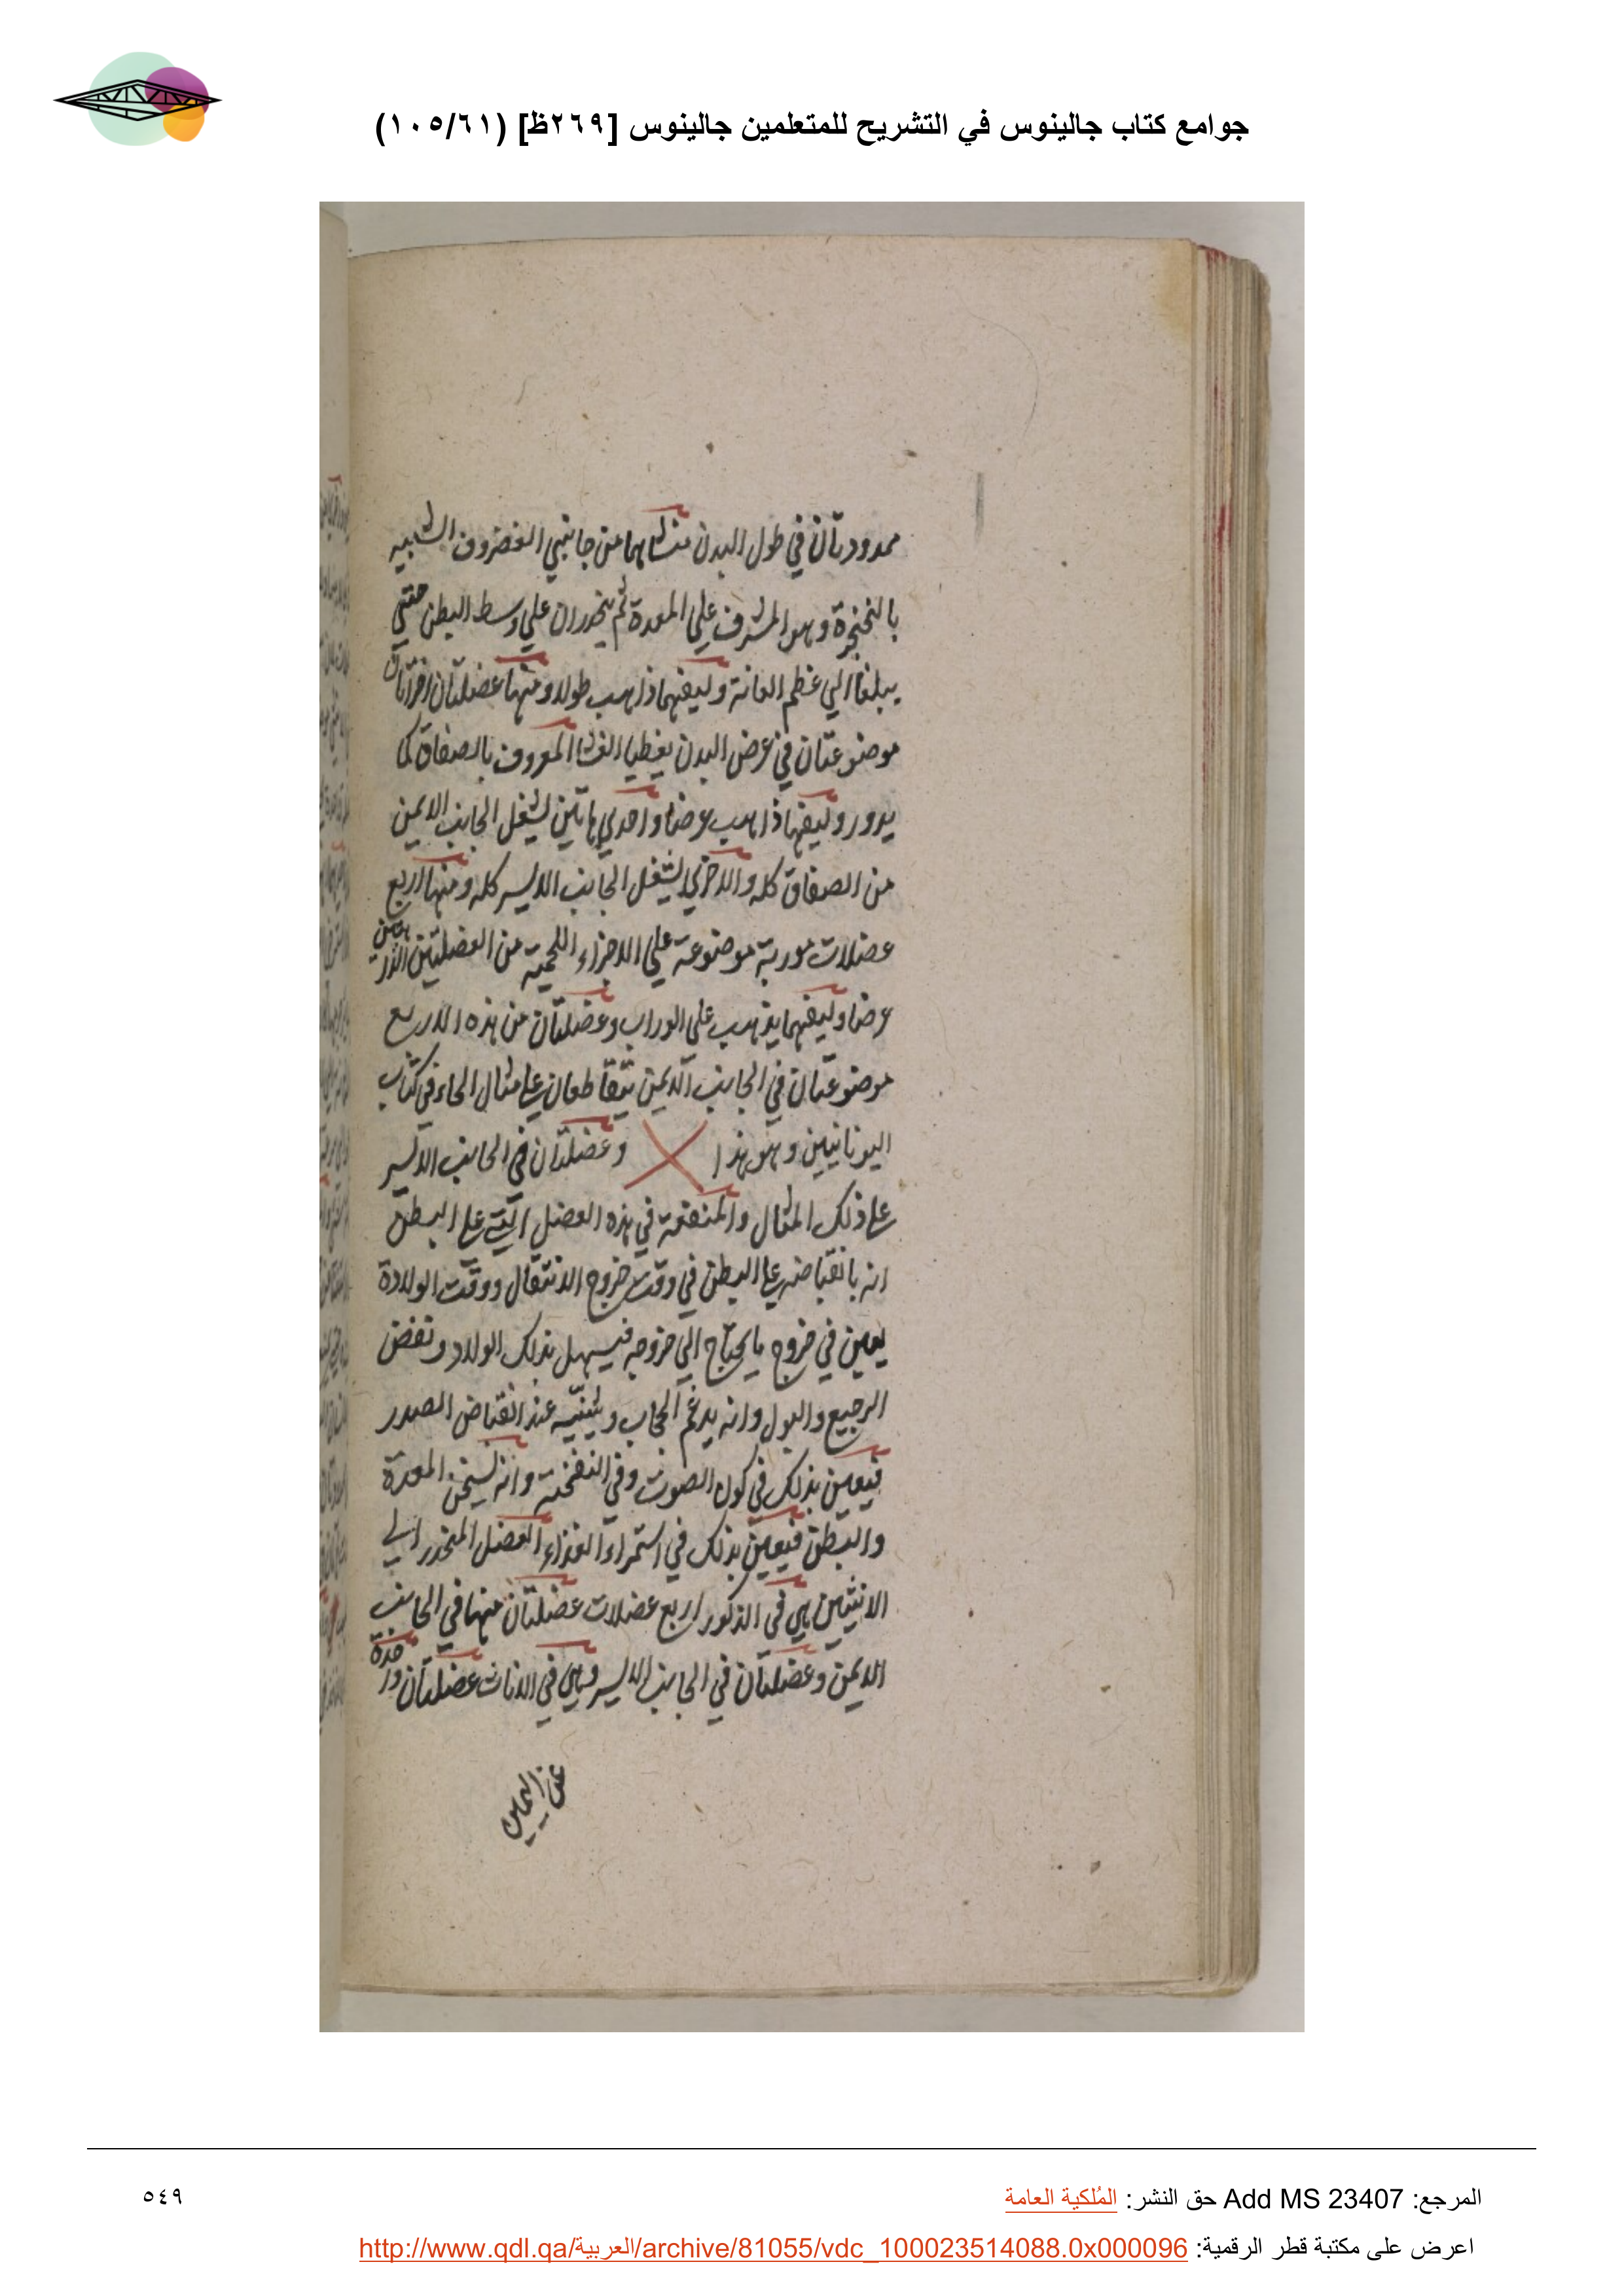 جوامع كتاب جالينوس في التشريح للمتعلمين جالينوس [٢٦٩ظ] (١٠٥/٦١)
ممدودتان في طول البدن منشاهما من جانبي الغضروف الشبيه
بالخنجرة وهو المشرف علي المعدة ثم ينحدران علي وسط البطن حتي
يبلغا الي عظم العانة وليفهما ذاهب طولا ومنها عضلتان اخرتان
موضوعتان في عرض البدن يغطيا الغشا المعروف بالصفاق كما
يدور وليفها ذاهب عرضا واحدي هاتين تشغل الجانب الايمن
من الصفاق كله والاخري تشغل الجانب الايسر كله ومنها اربع
عضلات موربة موضوعة علي الاجزاء اللحمية من العضلتين الذاهبتين
عرضا وليفهما يذهب علي الوراب وعضلتان من هذه الاربع
موضوعتان في الجانب الايمن تتقاطعان علي مثال الحاء في كتاب
اليونانيين وهو هذا X وعضلتان في الجانب الايسر
علي ذلك المثال والمنفعة في هذه العضل التي علي البطن
انه بانقباضه علي البطن في وقت خروج الاثقال ووقت الولادة
يعين في خروج ما يحتاج الي خروجه فيسهل بذلك الولاد ونفض
الرجيع والبول وانه يدغم الحجاب ويثنيه عند انقباض الصدر
فيعين بذلك في كون الصوت وفي النفخة وانه يسخن المعدة
والبطن فيعين بذلك في استمراء الغذاء العضل المنحدر الي
الانثيين هي في الذكور اربع عضلات عضلتان منها في الجانب
الايمن وعضلتان في الجانب الايسر وهي في الاناث عضلتان واحدة
عن اليمين
المرجع: Add MS 23407 حق النشر: المُلكية العامة
٥٤٩
اعرض على مكتبة قطر الرقمية: http://www.qdl.qa/العربية/archive/81055/vdc_100023514088.0x000096